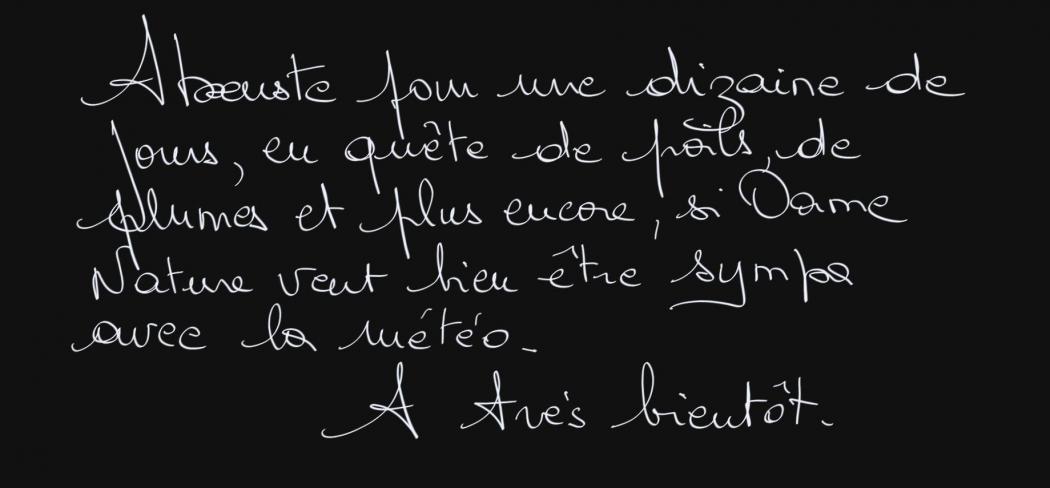 Absente pour une dizaine de
jours, en quête de poils, de
plumes et plus encore, si Dame
Nature veut bien être sympa
avec la météo.
A très bientôt.